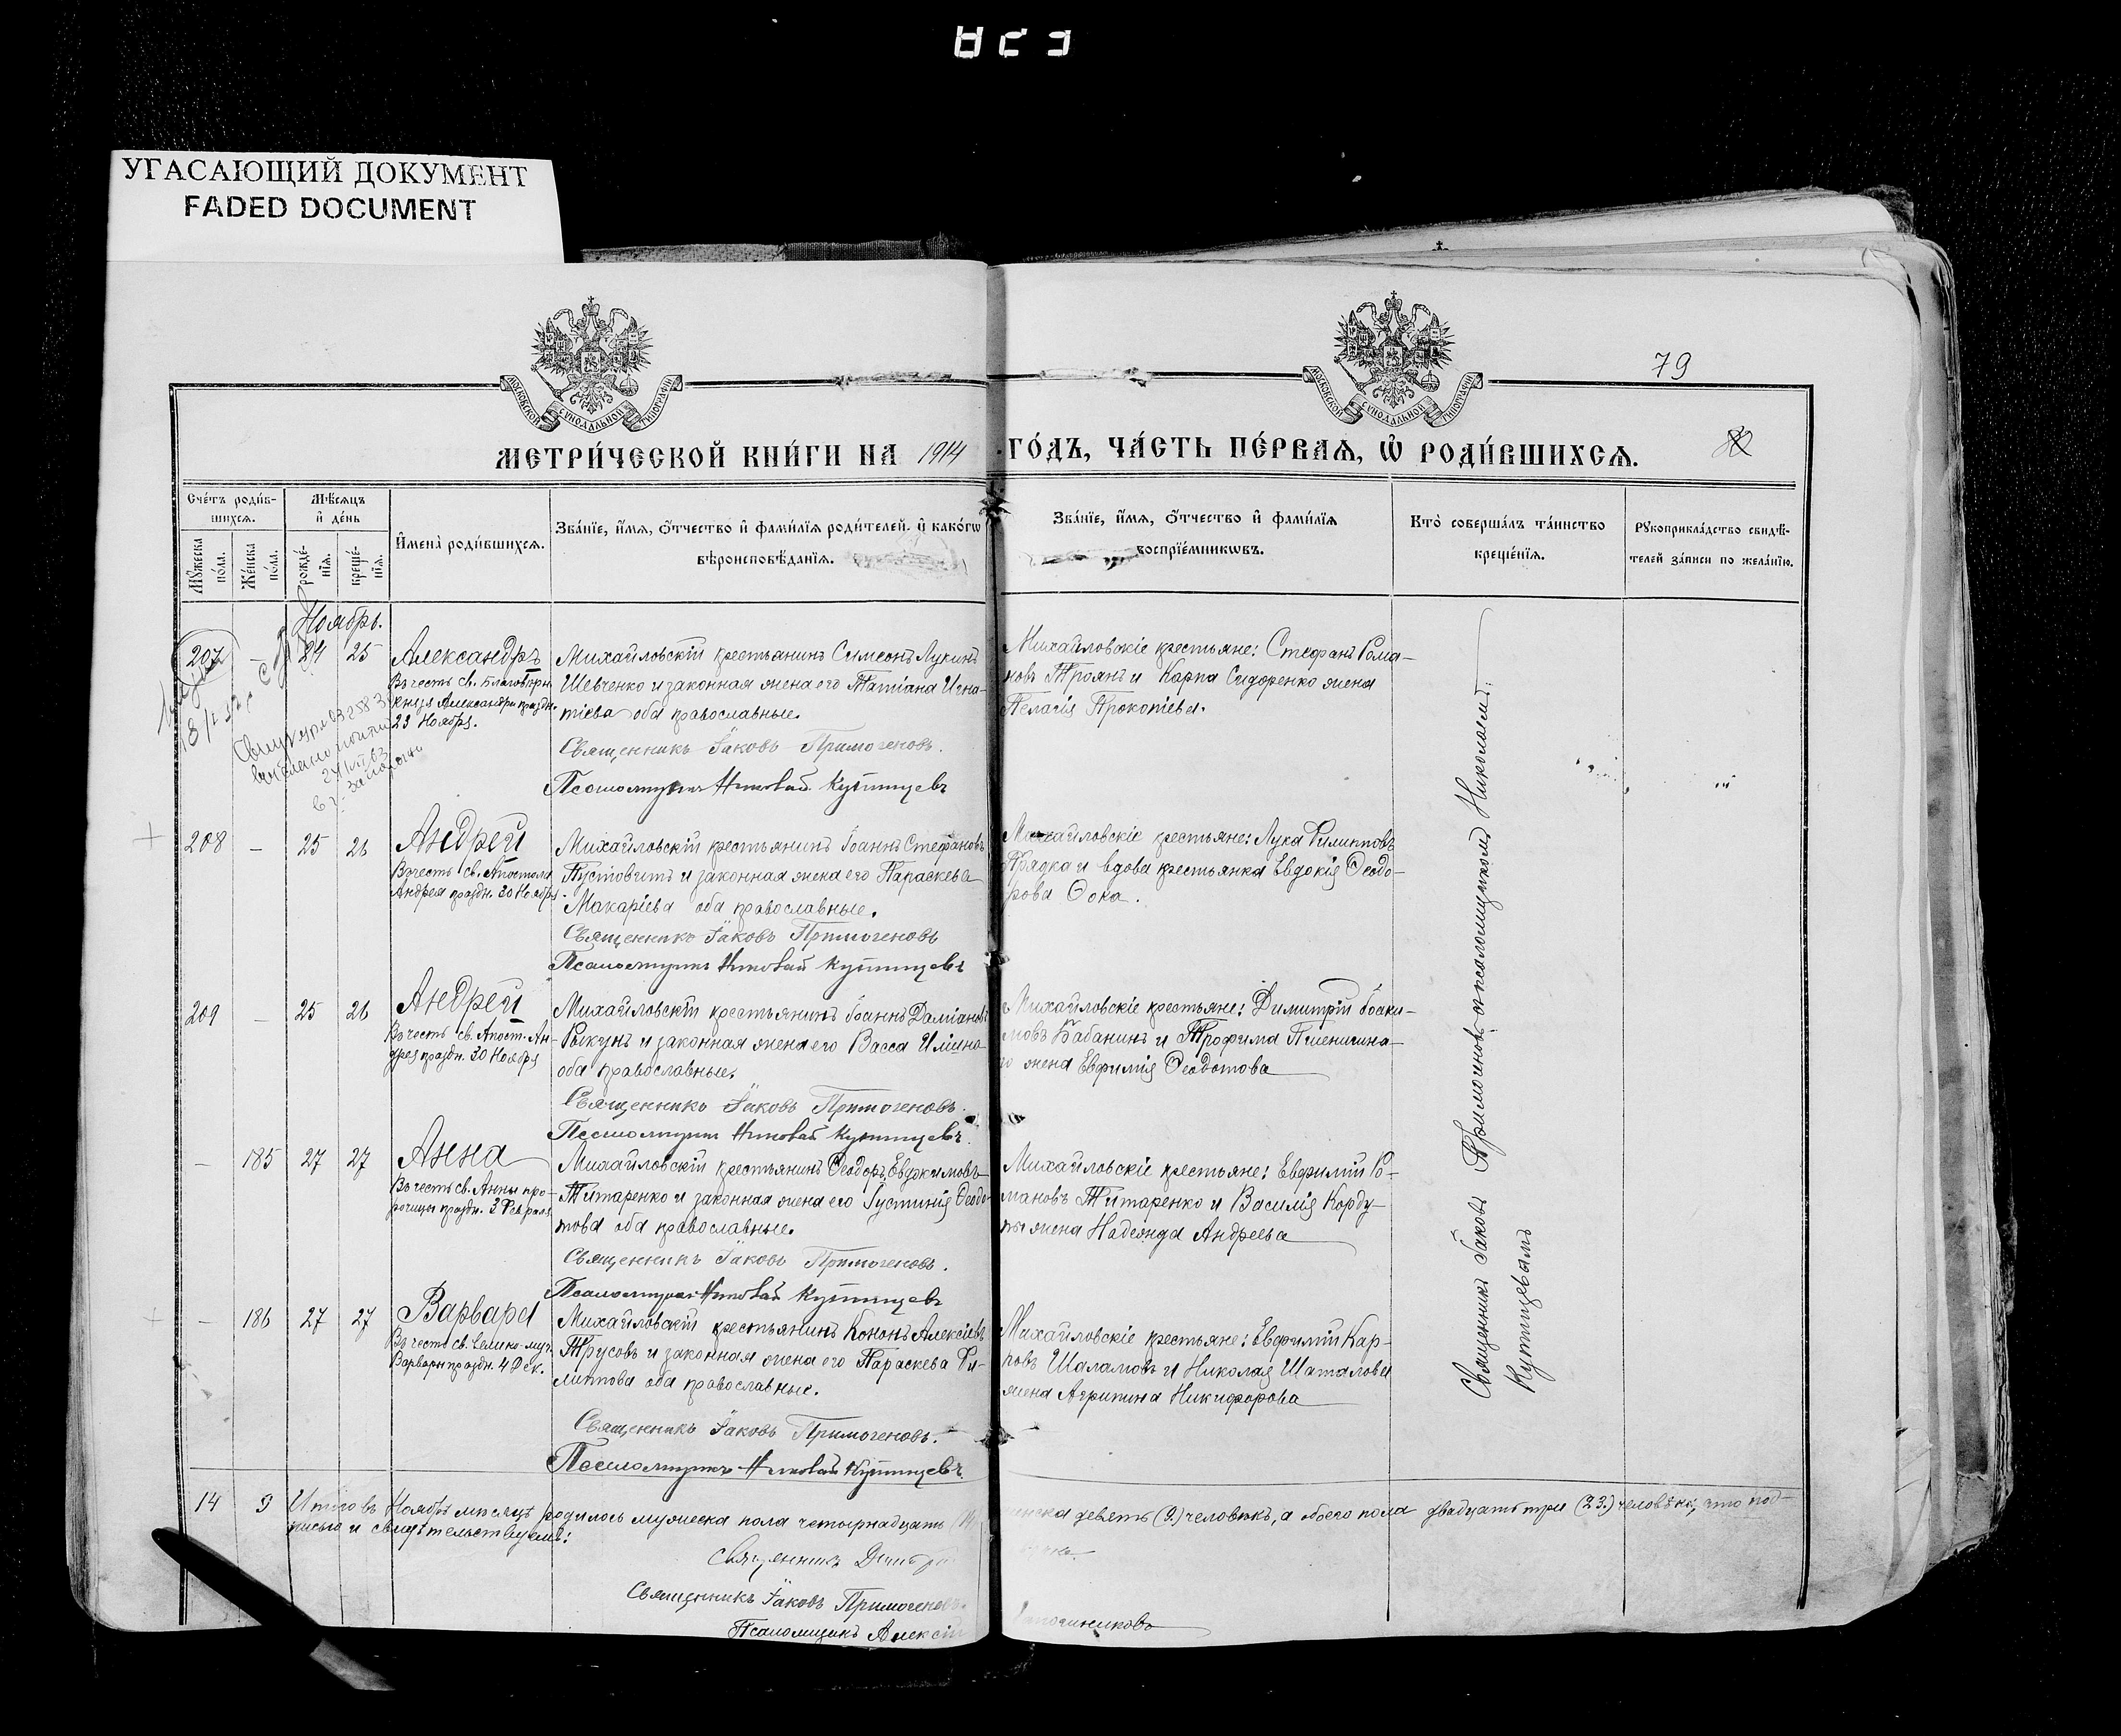 УГАСАЮЩИЙ ДОКУМЕНТ
FADED DOCUMENT
МОСКОВСКОЙ СѴНОДАЛЬНОЙ ТИПОГРАФІИ
МОСКОВСКОЙ СѴНОДАЛЬНОЙ ТИПОГРАФІИ
79
МЕТРИ́ЧЕСКОЙ КНИ́ГИ НА 1914 ГО́ДЪ, ЧА́СТЬ ПЕ́РВАЯ, Ѽ РОДИ́ВШИХСЯ.
Сче́тъ роди́в-
шихся.
Мѣ́сяцъ
и҆ де́нь
Мꙋ́жеска по́ла.
Же́нска по́ла.
рожде́-нїя.
креще́-нїя.
И҆мена̀ роди́вшихся.
Зва́нїе, и҆́мя, ѻ҆́тчество и҆ фами́лїя роди́телей, и҆ како́гѡ
вѣроисповѣ́данїя.
Зва́нїе, и҆́мя, ѻ҆́тчество и҆ фами́лїя
воспрїе́мникѡвъ.
Кто̀ соверша́лъ та́инство
креще́нїя.
Рꙋкоприкла́дство свидѣ́-
телей за́писи по жела́нїю.
Ноябрь.
207 — 24 25 Александръ
Въ честь св. Благовѣрн.
Князя Александра праздн.
23 Ноября.
Михайловскій крестьянинъ Симеонъ Лукинъ
Шевченко и законная жена его Татіана Игна-
тіева оба православные.
Священникъ Іаковъ Примогеновъ.
Псаломщикъ Николай Купинцевъ
Михайловскіе крестьяне: Стефанъ Рома-
новъ Троянъ и Карпа Сидоренко жена
Пелагія Прокопіева.
208 — 25 26 Андрей
Въ честь св. Апостола
Андрея праздн. 30 Ноября.
Михайловскій крестьянинъ Іоаннъ Стефановъ
Пустовитъ и законная жена его Параскева
Макаріева оба православные.
Священникъ Іаковъ Примогеновъ
Псаломщикъ Николай Купинцевъ
Михайловскіе крестьяне: Лука Филипповъ
Прядка и вдова крестьянка Евдокія Ѳеодо-
рова Ѳока.
209 — 25 26 Андрей
Въ честь св. Апост. Ан-
дрея праздн. 30 Ноября
Михайловскій крестьянинъ Іоаннъ Даміановъ
Рыкунъ и законная жена его Васса Ильина
оба православные.
Священникъ Іаковъ Примогеновъ.
Псаломщикъ Николай Купинцевъ.
Михайловскіе крестьяне: Димитрій Іоаки-
мовъ Бабанинъ и Трофима Пшенична-
го жена Евфимія Ѳеодотова
— 185 27 27 Анна
Въ честь св. Анны про-
рочицы праздн. 3 Февраля
Михайловскій крестьянинъ Ѳеодоръ Евдокимовъ
Титаренко и законная жена его Іустинія Ѳеодо-
това оба православные.
Священникъ Іаковъ Примогеновъ.
Псаломщикъ Николай Купинцевъ
Михайловскіе крестьяне: Евфимій Ро-
мановъ Титаренко и Василія Корду-
пы жена Надежда Андреева
— 186 27 27 Варвара
Въ честь св. Велико-муч.
Варвары праздн. 4 Дек.
Михайловскій крестьянинъ Кононъ Алексіевъ
Трусовъ и законная жена его Параскева Фи-
липпова оба православные.
Священникъ Іаковъ Примогеновъ.
Псаломщикъ Николай Купинцевъ.
Михайловскіе крестьяне: Евфимій Кар-
повъ Шаламовъ и Николая Шаталова
жена Агрипина Никифорова
Священникъ Іаковъ Примогеновъ съ псаломщикомъ Николаемъ
Купинцевымъ
14 9 Итого въ Ноябрѣ мѣсяцѣ родилось мужеска пола четырнадцать (14) женска девять (9.) человѣкъ, а обоего пола двадцать три (23.) человѣка, что под-
писью и свидѣтельствуемъ:
Священникъ
Священникъ Іаковъ Примогеновъ.
Псаломщикъ Алексій